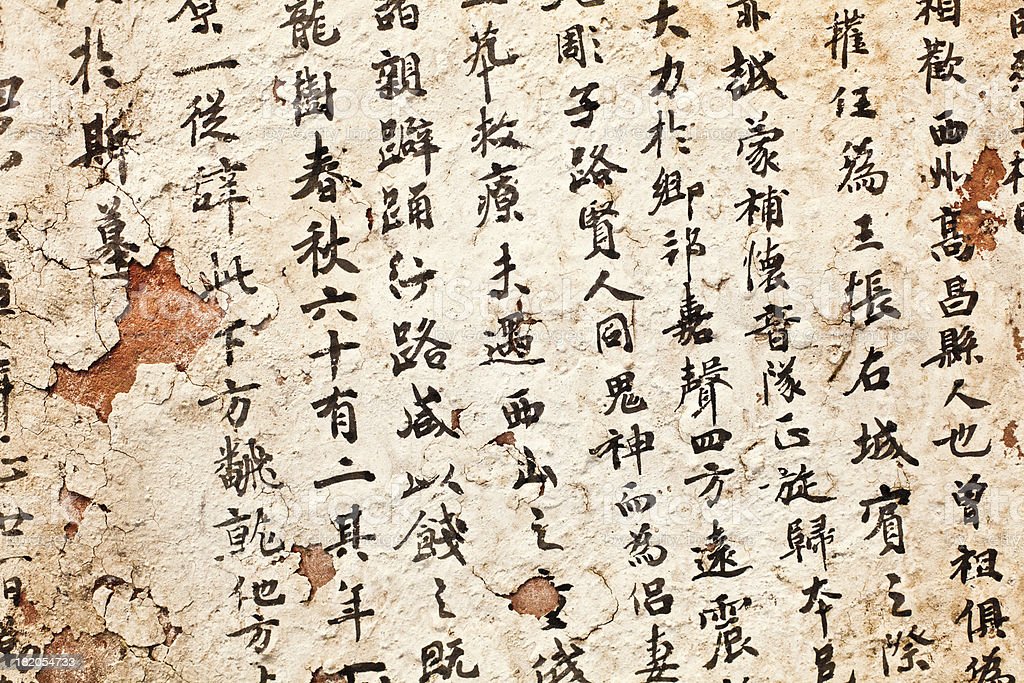 相歡西州高昌縣人也曾祖俱為
權任為王帳右城賓之際
誠蒙補懷音隊正旋歸本邑
大力於鄉邦嘉聲四方遠震
彫子路賢人同鬼神而為侶妻
救療未遇西山之
親躃踊行路咸以餞之既
龍樹春秋六十有二其年
原一從辭此下方飜就他方
於斯墓
廿一日
iStock
162054733